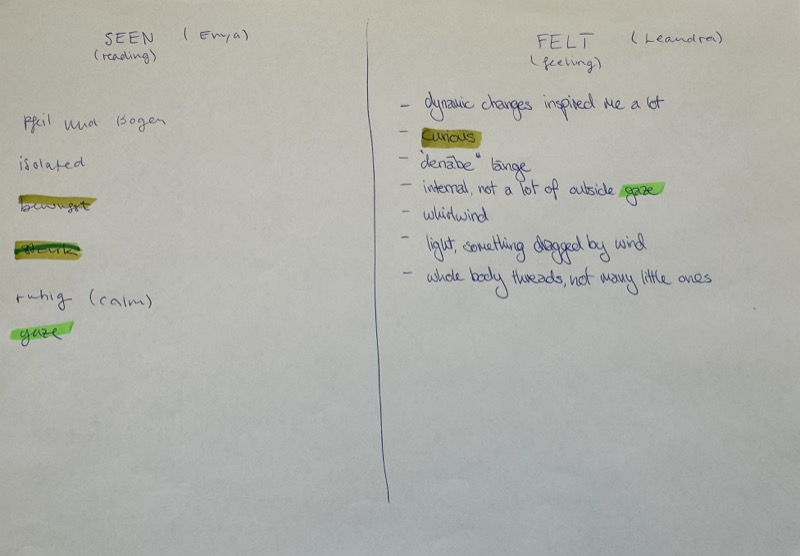 SEEN (Enya)
(reading)
Pfeil und Bogen
isolated
bewusst
ruhig (calm)
gaze
FELT (Leandra)
(feeling)
- dynamic changes inspired me a lot
- curious
- länge
- internal, not a lot of outside gaze
- whirlwind
- light, something dragged by wind
- whole body threads, not many little ones